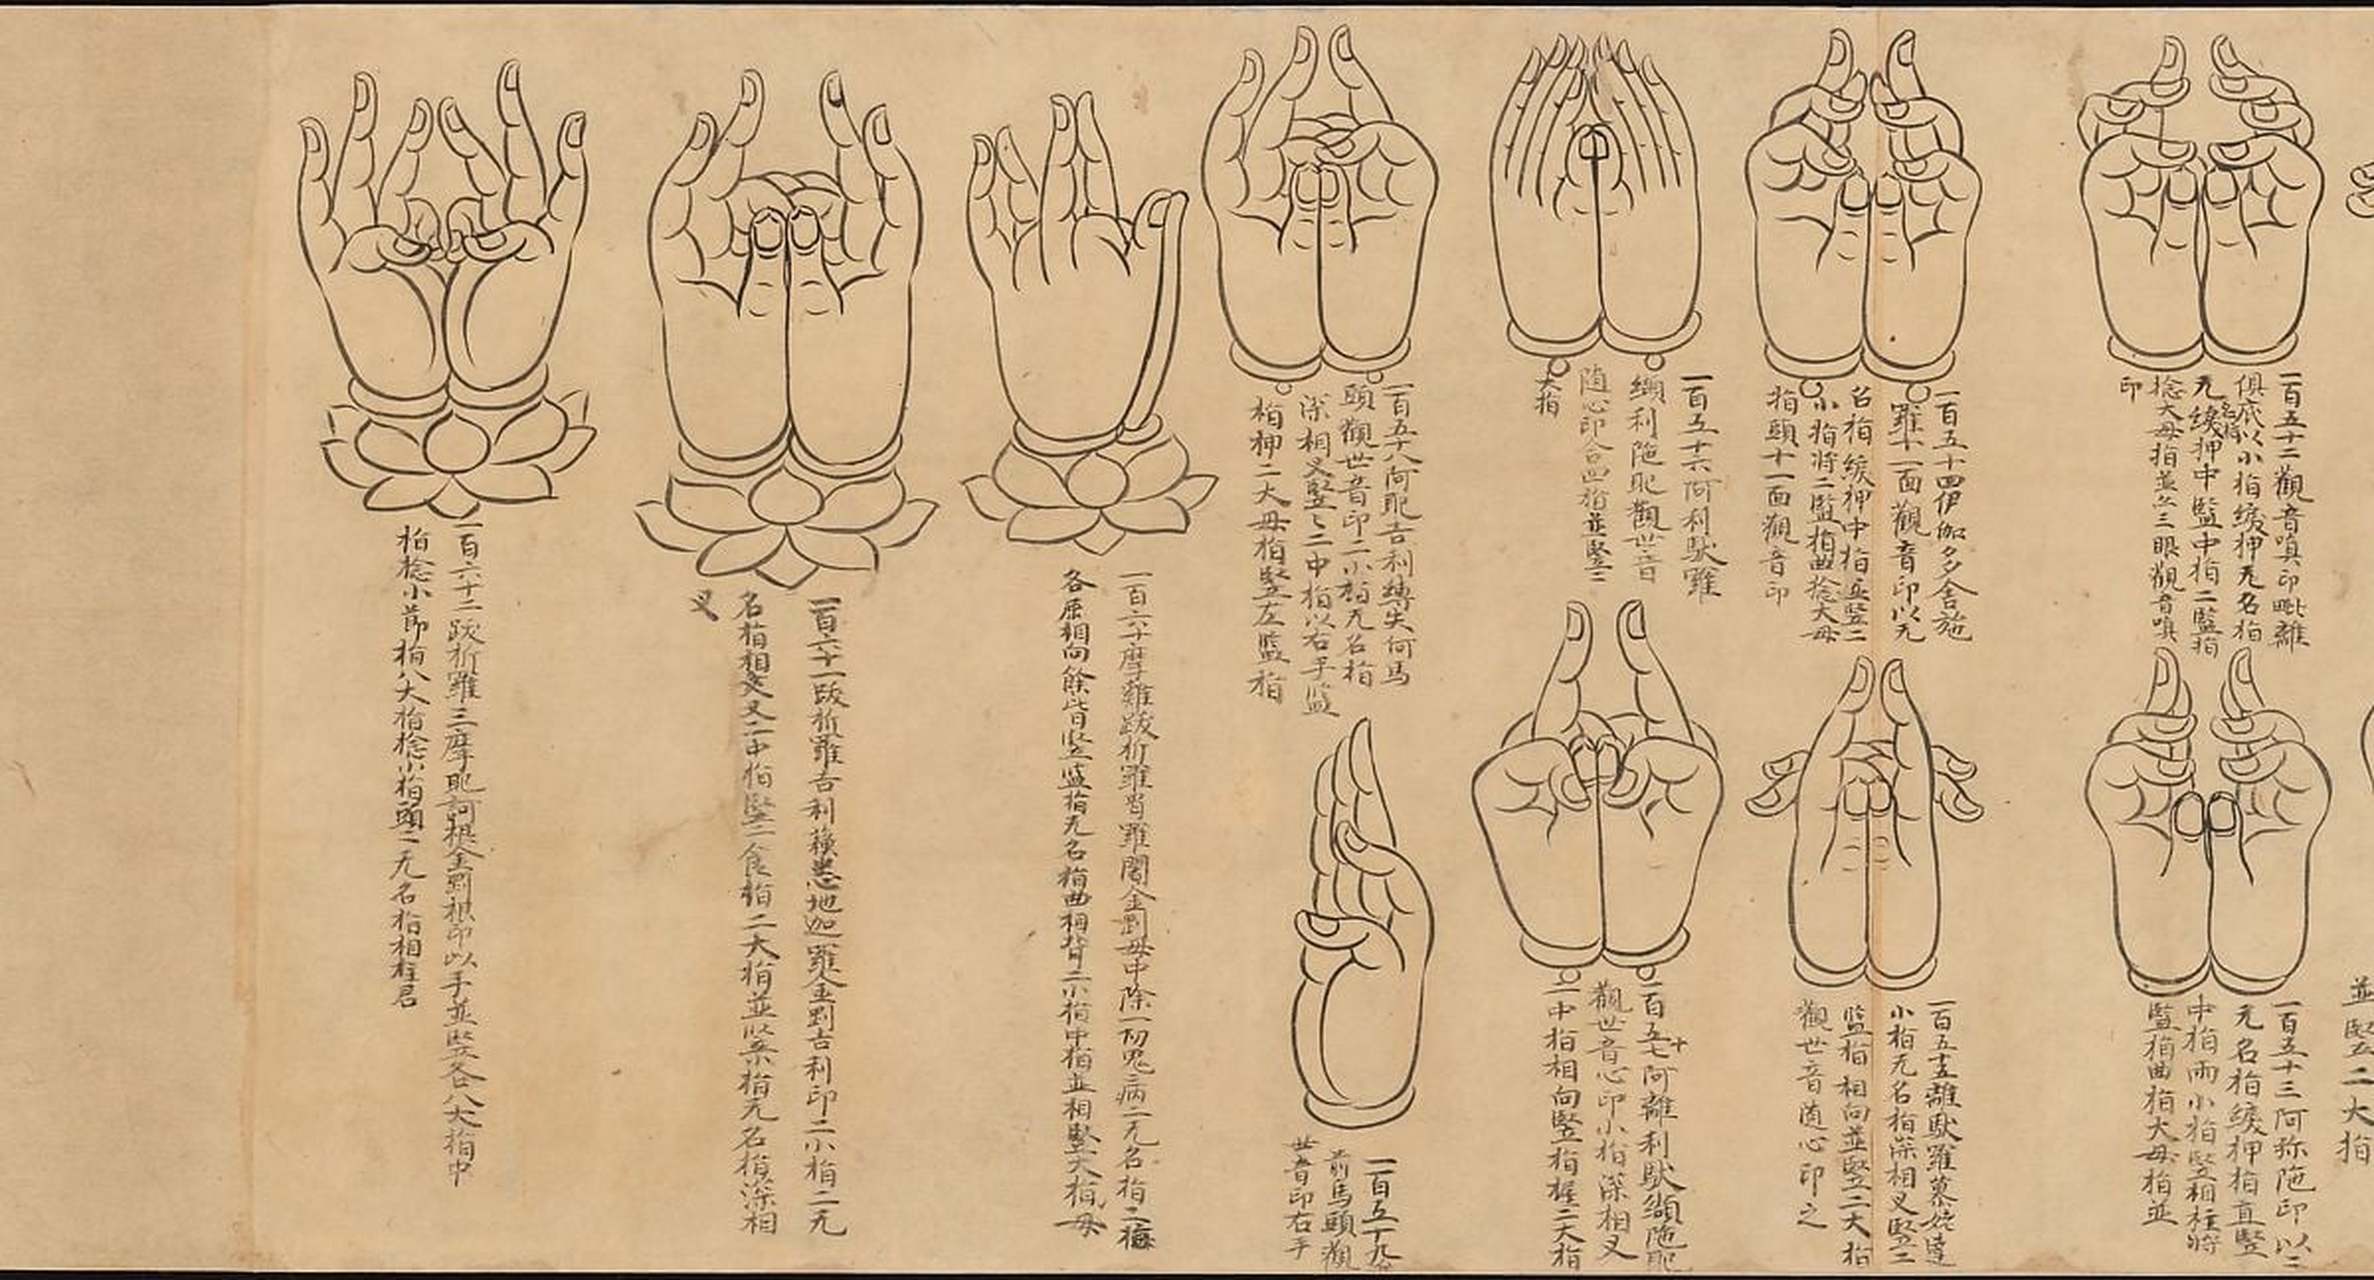 並竪二大指
一百五十二觀音嗔印毗離
俱胝以小指緩押无名指
无名指緩押中監中指二監指
捻大母指並亦三眼觀音嗔
印
一百五十三阿弥陁印以二
无名指緩押指直竪
中指兩小指竪相柱將
監指曲指大母指並
一百五十四伊伽多舍施
羅十一面觀音印以无
名指緩押中指並竪二
小指將二監指曲捻大母
指頭十一面觀音印
一百五十五離馱羅慕姹達
小指无名指深相叉竪二
監指相向並竪二大指
觀世音随心印之
一百五十六阿利馱羅
纈利陁毗觀世音
随心印合四指並竪二
大指
一百五十七阿離利馱纈陁毗
觀世音心印小指深相叉
二中指相向竪指握二大指
一百五十八阿毗吉利縳失何馬
頭觀世音印二小指无名指
深相叉竪之二中指以右手監
指押二大母指竪左監指
一百五十九
前馬頭觀
世音印右手
一百六十摩離跋折羅 羅闍金剛母中除一切鬼病二无名指二
各屈相向餘皆竪監指无名指曲相背二小指中指並相竪大指母
一百六十一跋折羅吉利 悉地迦羅金剛吉利印二小指二无
名指相叉叉二中指竪二食指二大指並竪小指无名指深相
叉
一百六十二跋折羅三摩毗訶根金剛根印以手並竪各八大指中
指捻小節指八大指捻小指頭二无名指相柱君